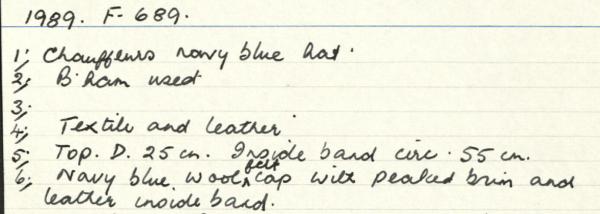 1989. F-689.
1; Chauffeurs navy blue hat.
2; B'ham used
3;
4; Textile and leather
5; Top. D. 25 cm. Inside band circ. 55 cm.
6; Navy blue wool felt cap with peaked brim and
leather inside band.